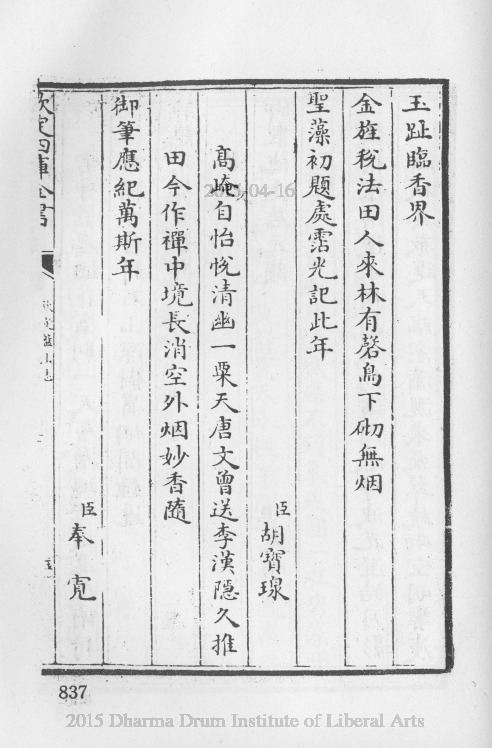 玉趾臨香界
金旌稅法田人來林有磬鳥下砌無烟
聖藻初題處霑光記此年
臣胡寶瑔
高晻自怡悅清幽一粟天唐文曾送李漢隱久推
田今作禪中境長消空外烟妙香隨
御筆應紀萬斯年
臣奉寬
欽定四庫全書
欽定盤山志
2015-04-16
837
2015 Dharma Drum Institute of Liberal Arts